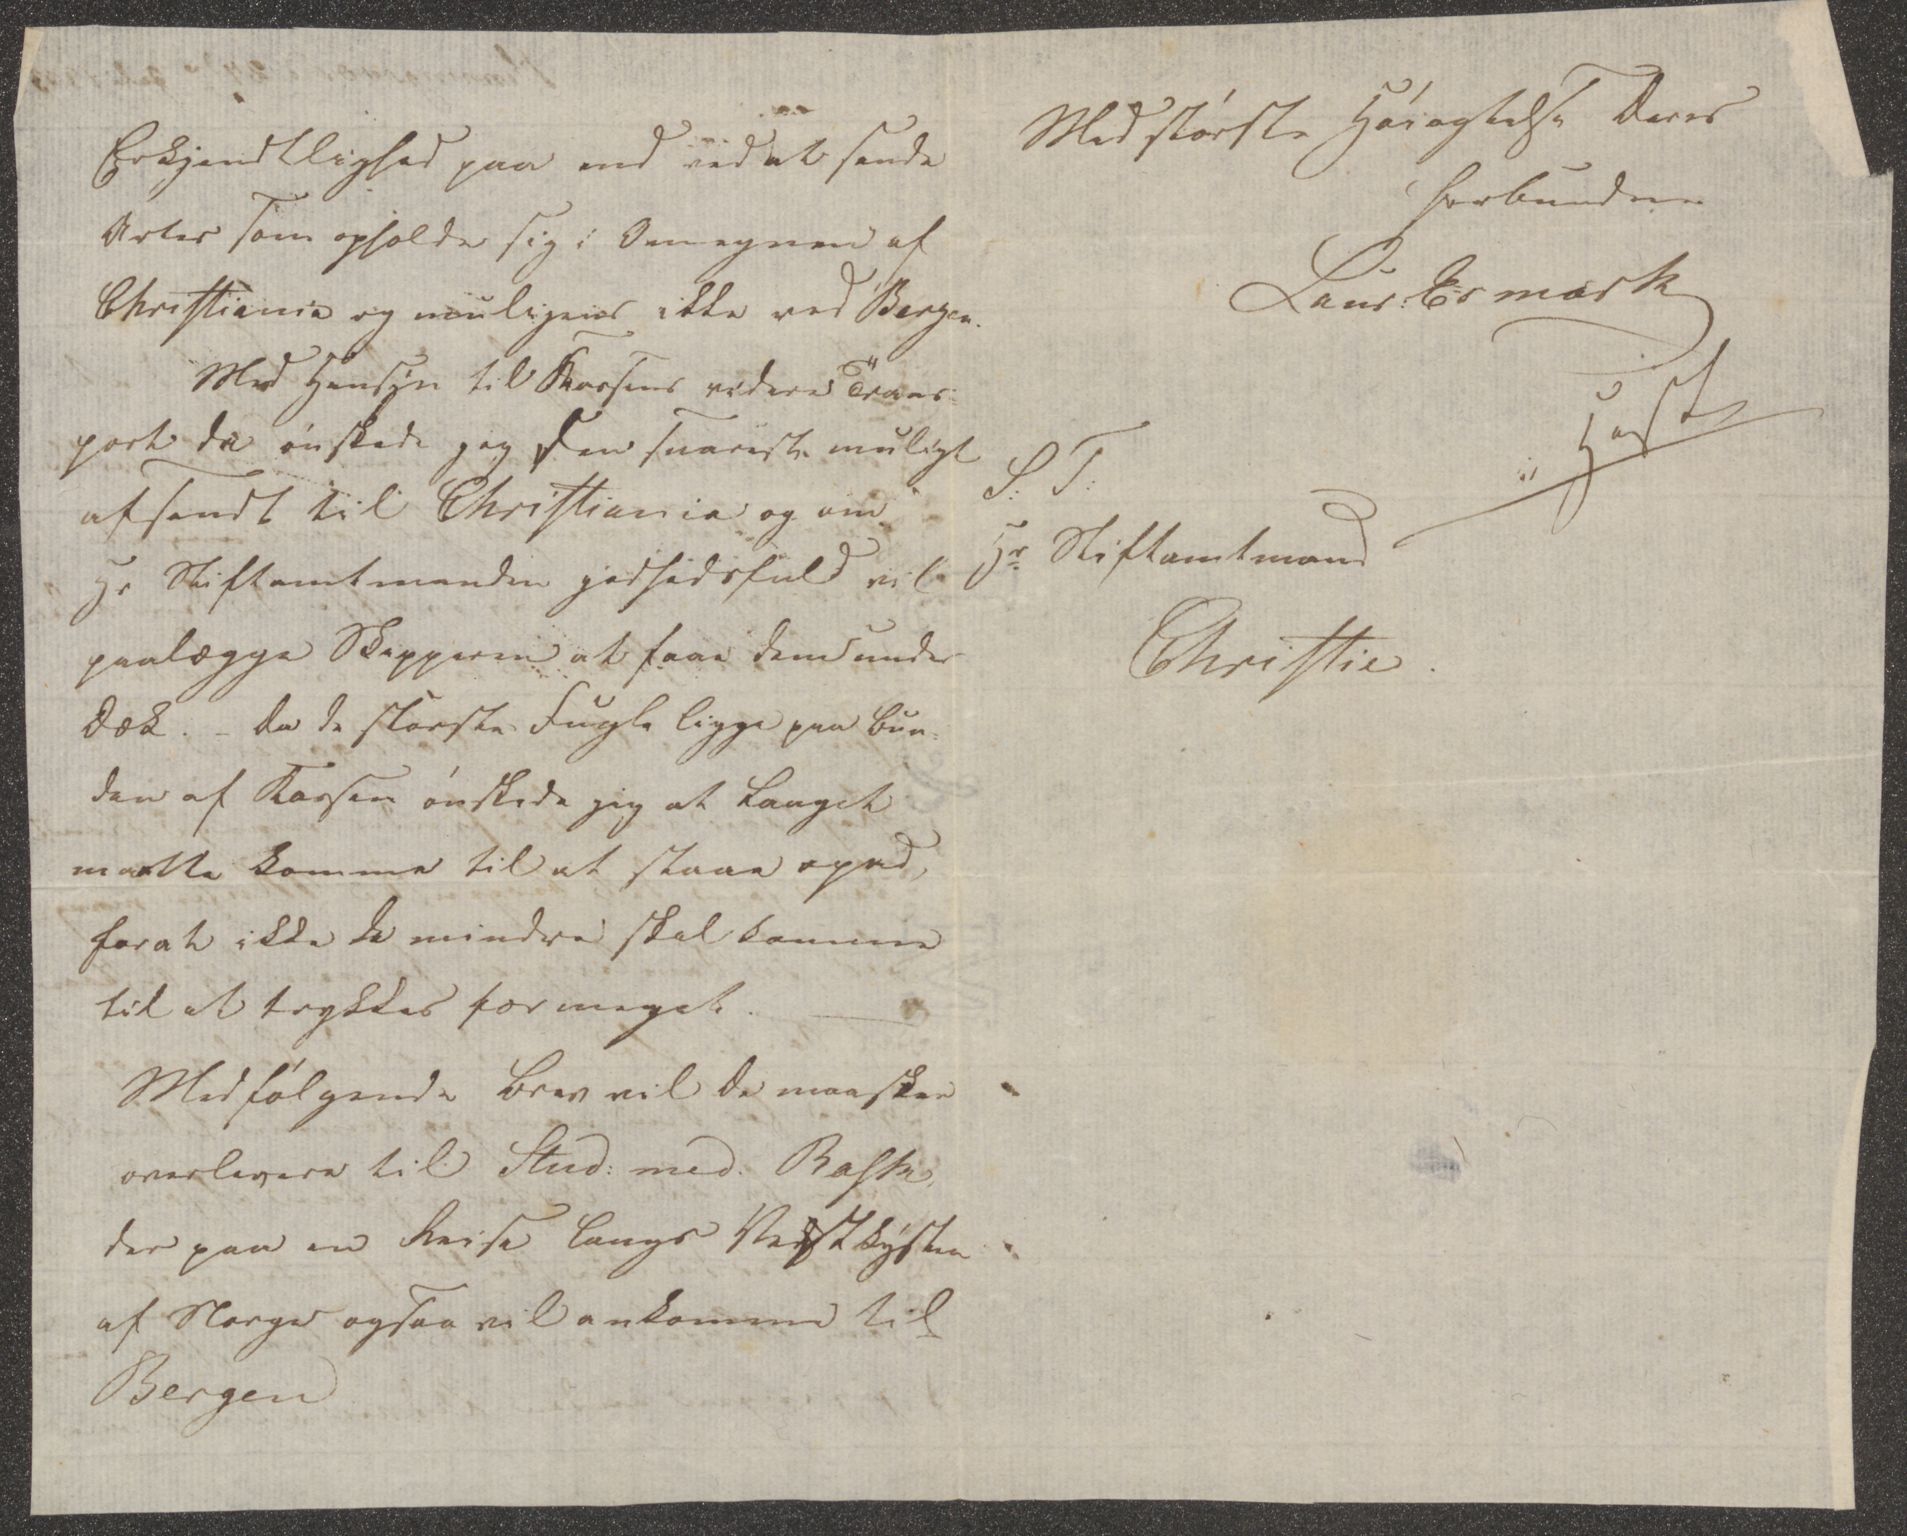 Erkjendtlighed paa end ved at sende
Arter som opholde sig i Omegnen af
Christiania og muligens ikke ved Bergen.
Med Hensyn til Kassens videre Trans-
port da ønskede jeg den snarest muligt
afsendt til Christiania og om
Hr Stiftamtmanden godhedsfuld vil
paalægge Skipperen at faae dem under
Dæk. – Da de største Fugle ligge paa Bun-
den af Kassen ønskede jeg at Laaget
maatte komme til at staae opad,
forat ikke de mindre skal komme
til at trykkes for meget. —
Medfølgende Brev vil De maaskee
overlevere til Stud: med.
der paa en Reise langs Vestkysten
af Norge ogsaa vil ankomme til
Bergen
Med største Høiagtelse Deres
forbundne
Laur: Esmark
i Hast
S: T:
Hr. Stiftamtmand
Christie.